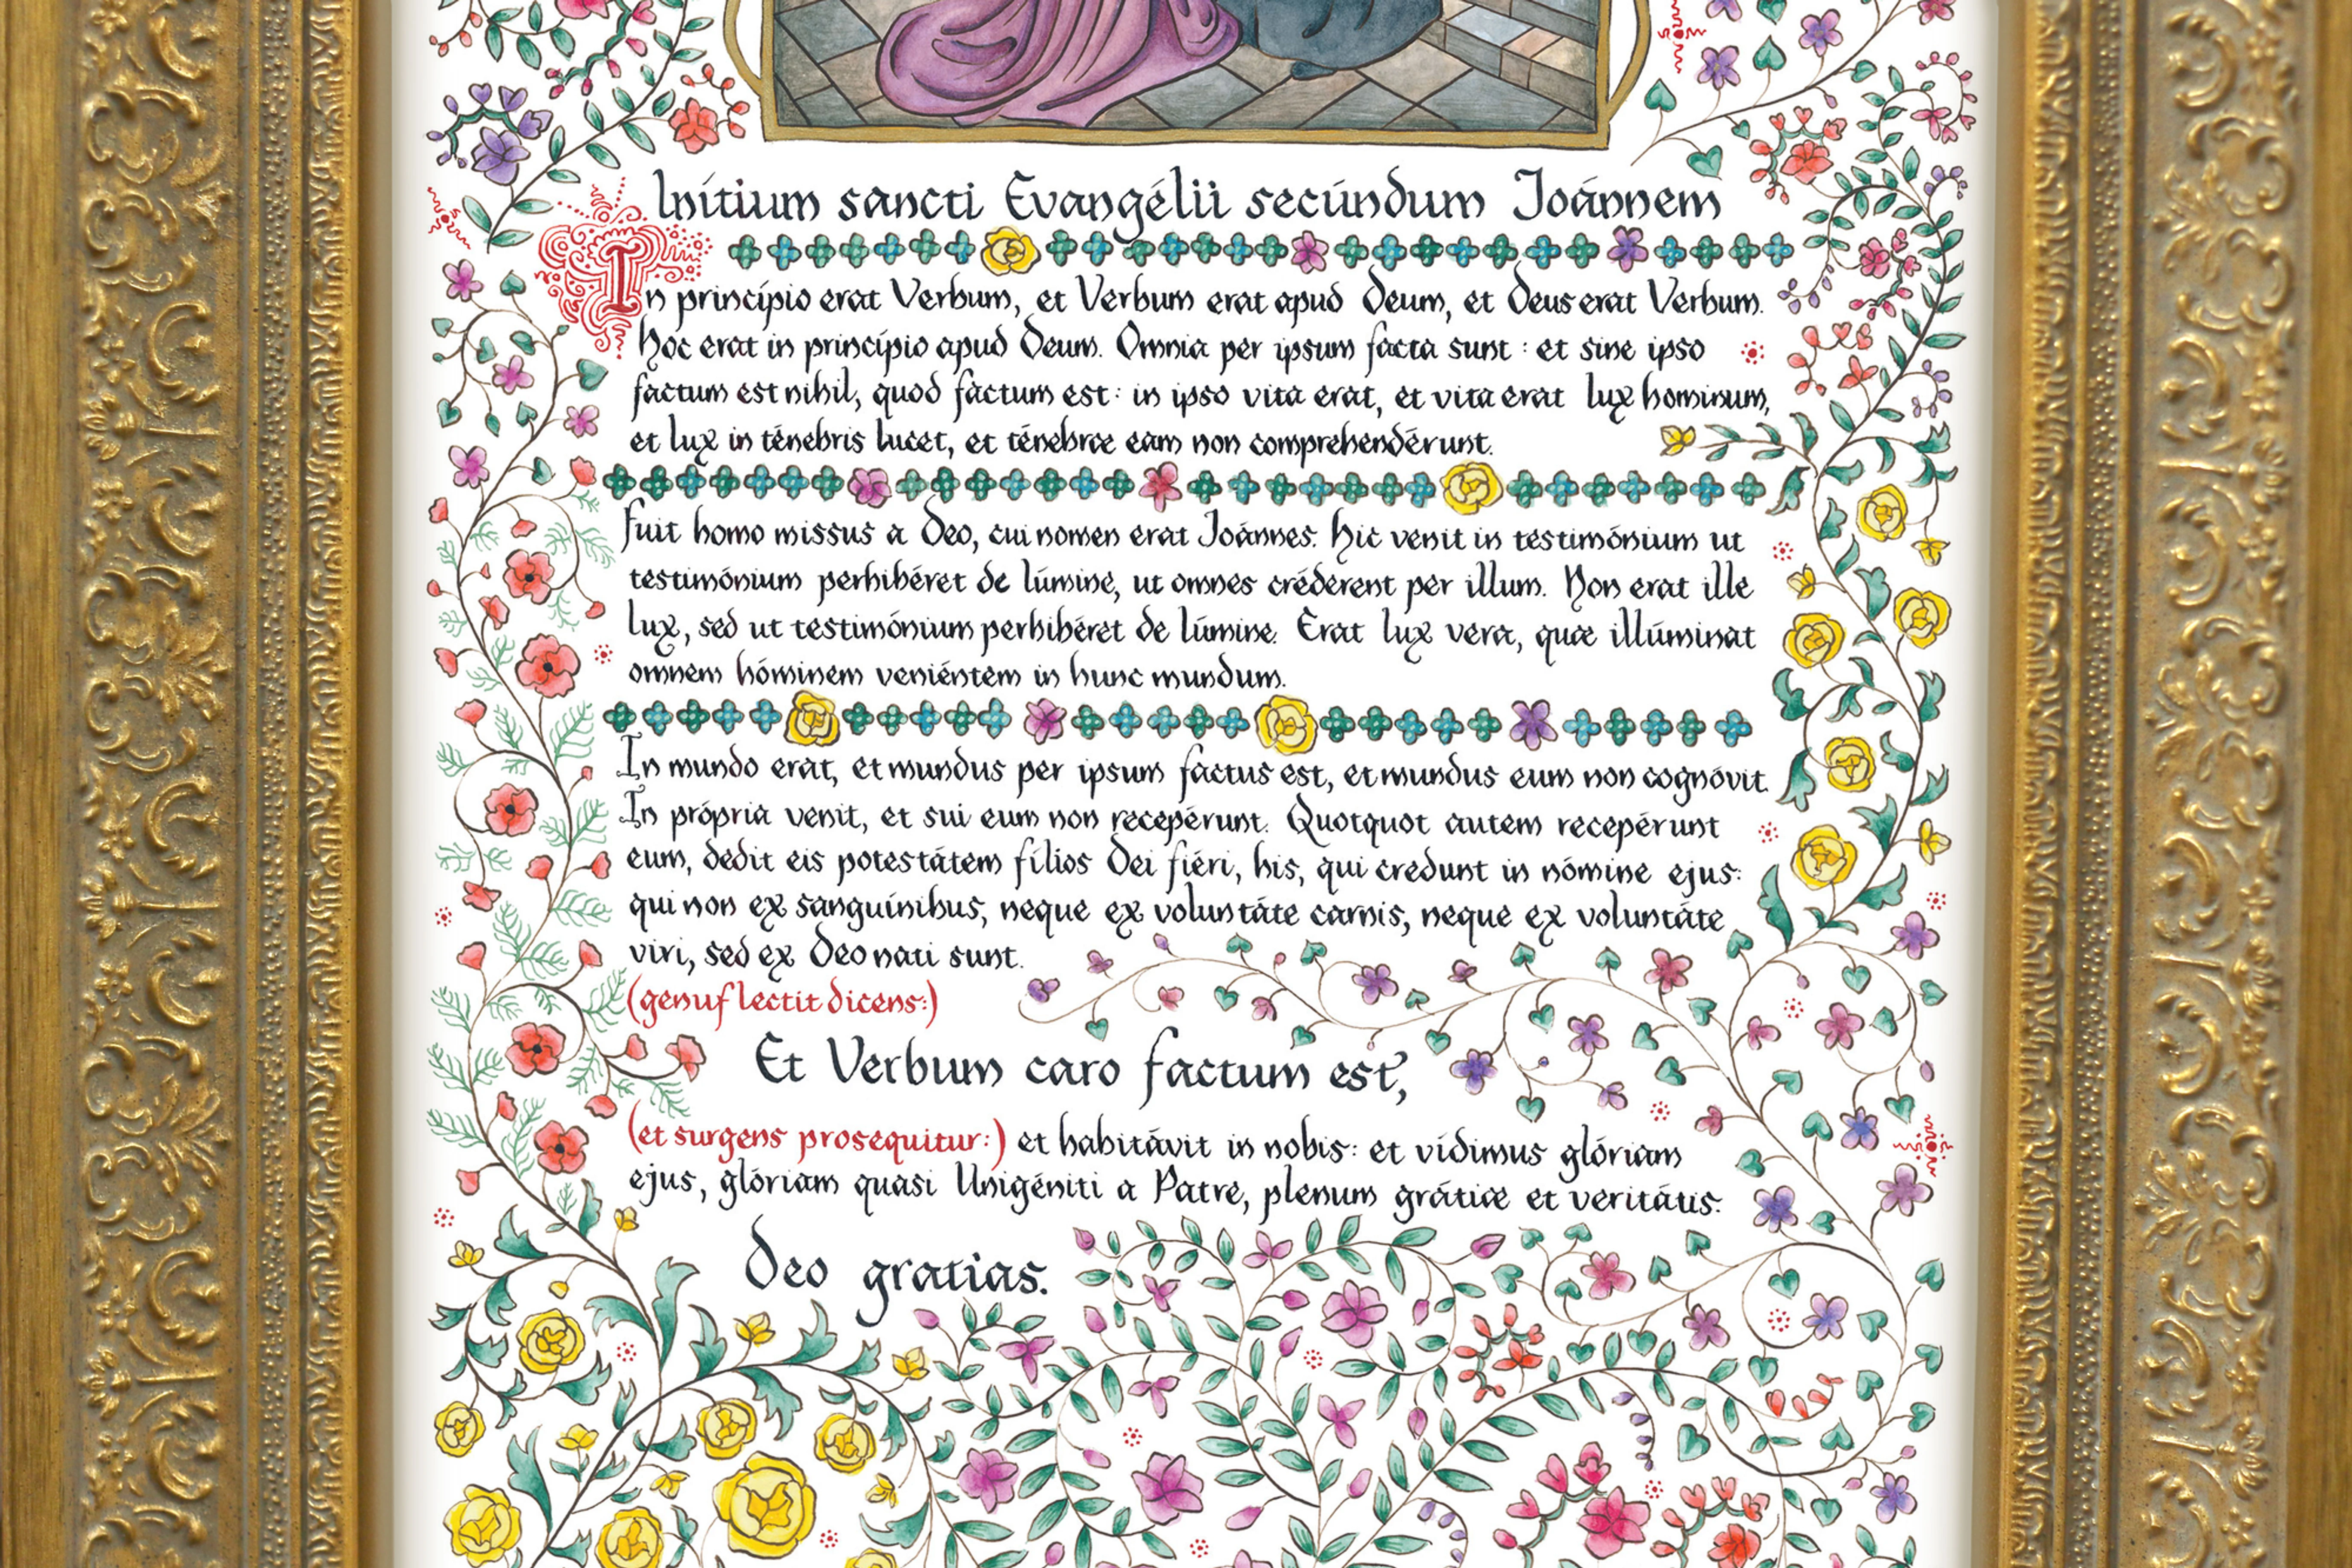 Inítium sancti Evangélii secúndum Joánnem
In princípio erat Verbum, et Verbum erat apud Deum, et Deus erat Verbum.
Hoc erat in princípio apud Deum. Omnia per ipsum facta sunt : et sine ipso
factum est nihil, quod factum est: in ipso vita erat, et vita erat lux hominum,
et lux in ténebris lucet, et ténebræ eam non comprehendérunt.
Fuit homo missus a Deo, cui nomen erat Joánnes. Hic venit in testimónium ut
testimónium perhibéret de lúmine, ut omnes créderent per illum. Non erat ille
lux, sed ut testimónium perhibéret de lúmine. Erat lux vera, quæ illúminat
omnem hóminem veniéntem in hunc mundum.
In mundo erat, et mundus per ipsum factus est, et mundus eum non cognóvit.
In própria venit, et sui eum non recepérunt. Quotquot autem recepérunt
eum, dedit eis potestátem fílios Dei fíeri, his, qui credunt in nómine ejus:
qui non ex sanguínibus, neque ex voluntáte carnis, neque ex voluntáte
viri, sed ex Deo nati sunt.
(genuflectit dicens:)
Et Verbum caro factum est,
(et surgens prosequitur:) et habitávit in nobis: et vídimus glóriam
ejus, glóriam quasi Unigéniti a Patre, plenum grátiæ et veritátis.
Deo gratias.